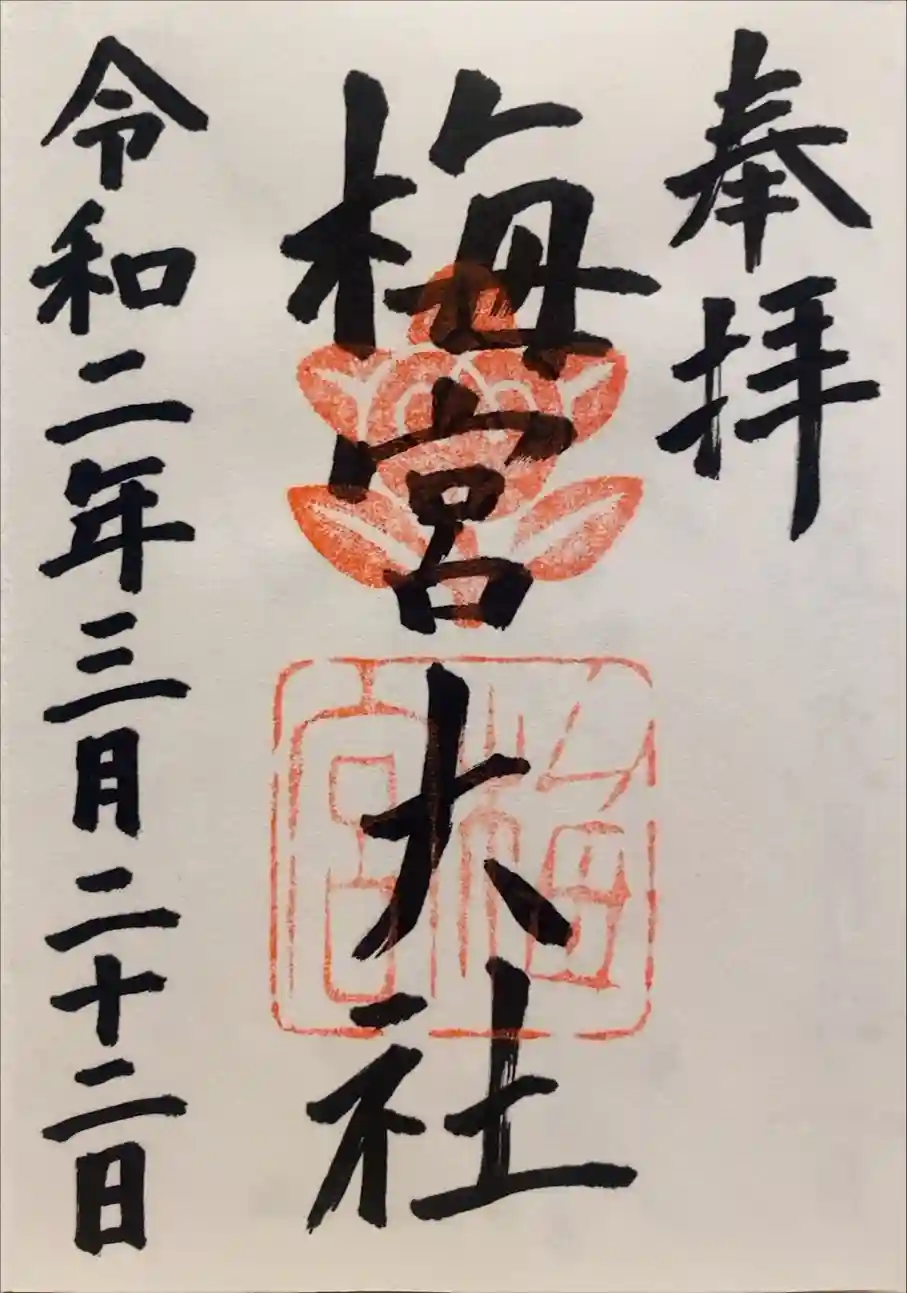 奉拝
梅宮大社
梅宮
令和二年三月二十二日